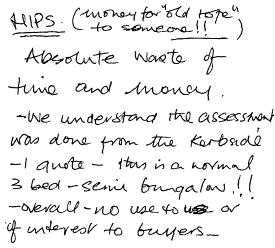 HIPS. (money for "old rope"
to someone!!)
Absolute waste of
time and money.
-We understand the assessment
was done from the kerbside
-I quote - this is a normal
3 bed - semi bungalow!!
-overall - no use to us or
of interest to buyers-